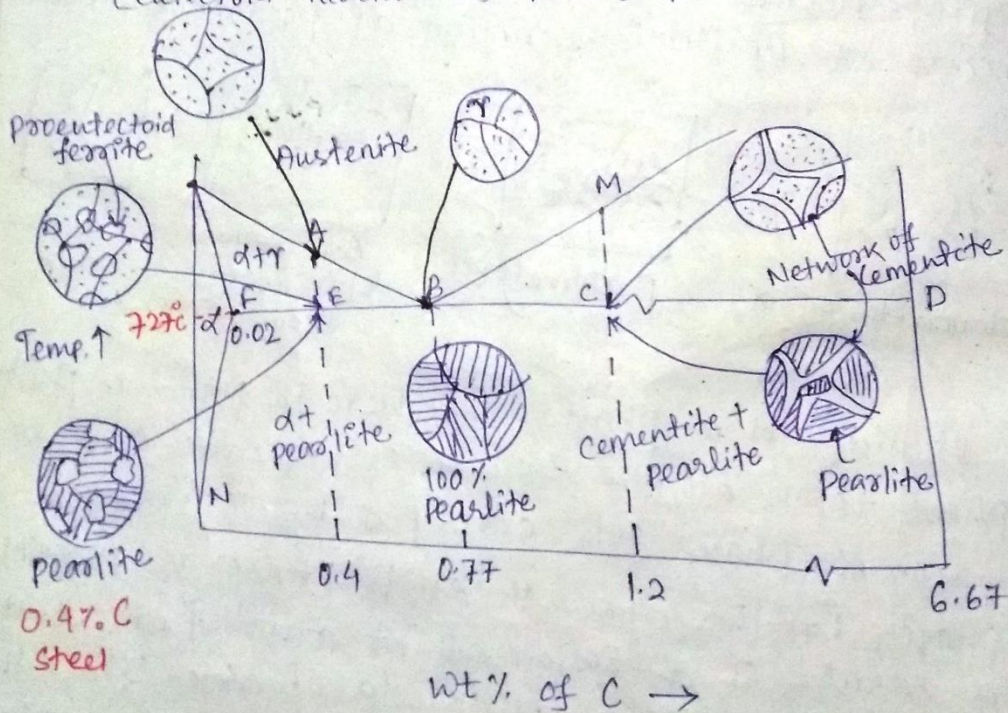 Proeutectoid
ferrite
Austenite
γ
A
M
α+γ
Network of
Cementite
F
E
B
C
D
727°C
α
0.02
Temp. ↑
α+
pearlite
100%
Pearlite
Cementite +
Pearlite
Pearlite
N
Pearlite
0.4
0.77
1.2
6.67
0.4% C
Steel
Wt % of C →